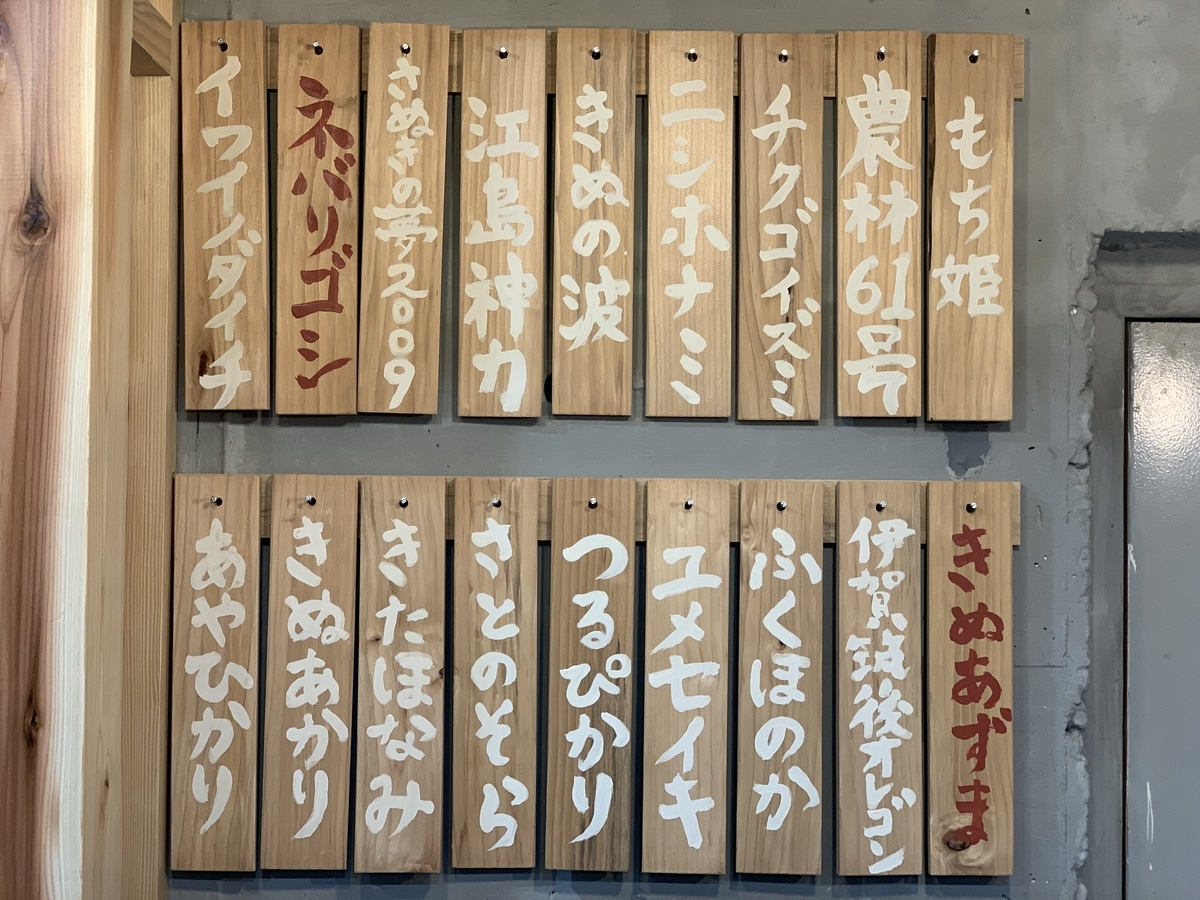 もち姫
農林61号
チクゴイズミ
ニシホナミ
きぬの波
江島神力
さぬきの夢2009
ネバリゴシ
イワイノダイチ
きぬあずま
伊賀筑後オレゴン
ふくほのか
ユメセイキ
つるぴかり
さとのそら
きたほなみ
きぬあかり
あやひかり